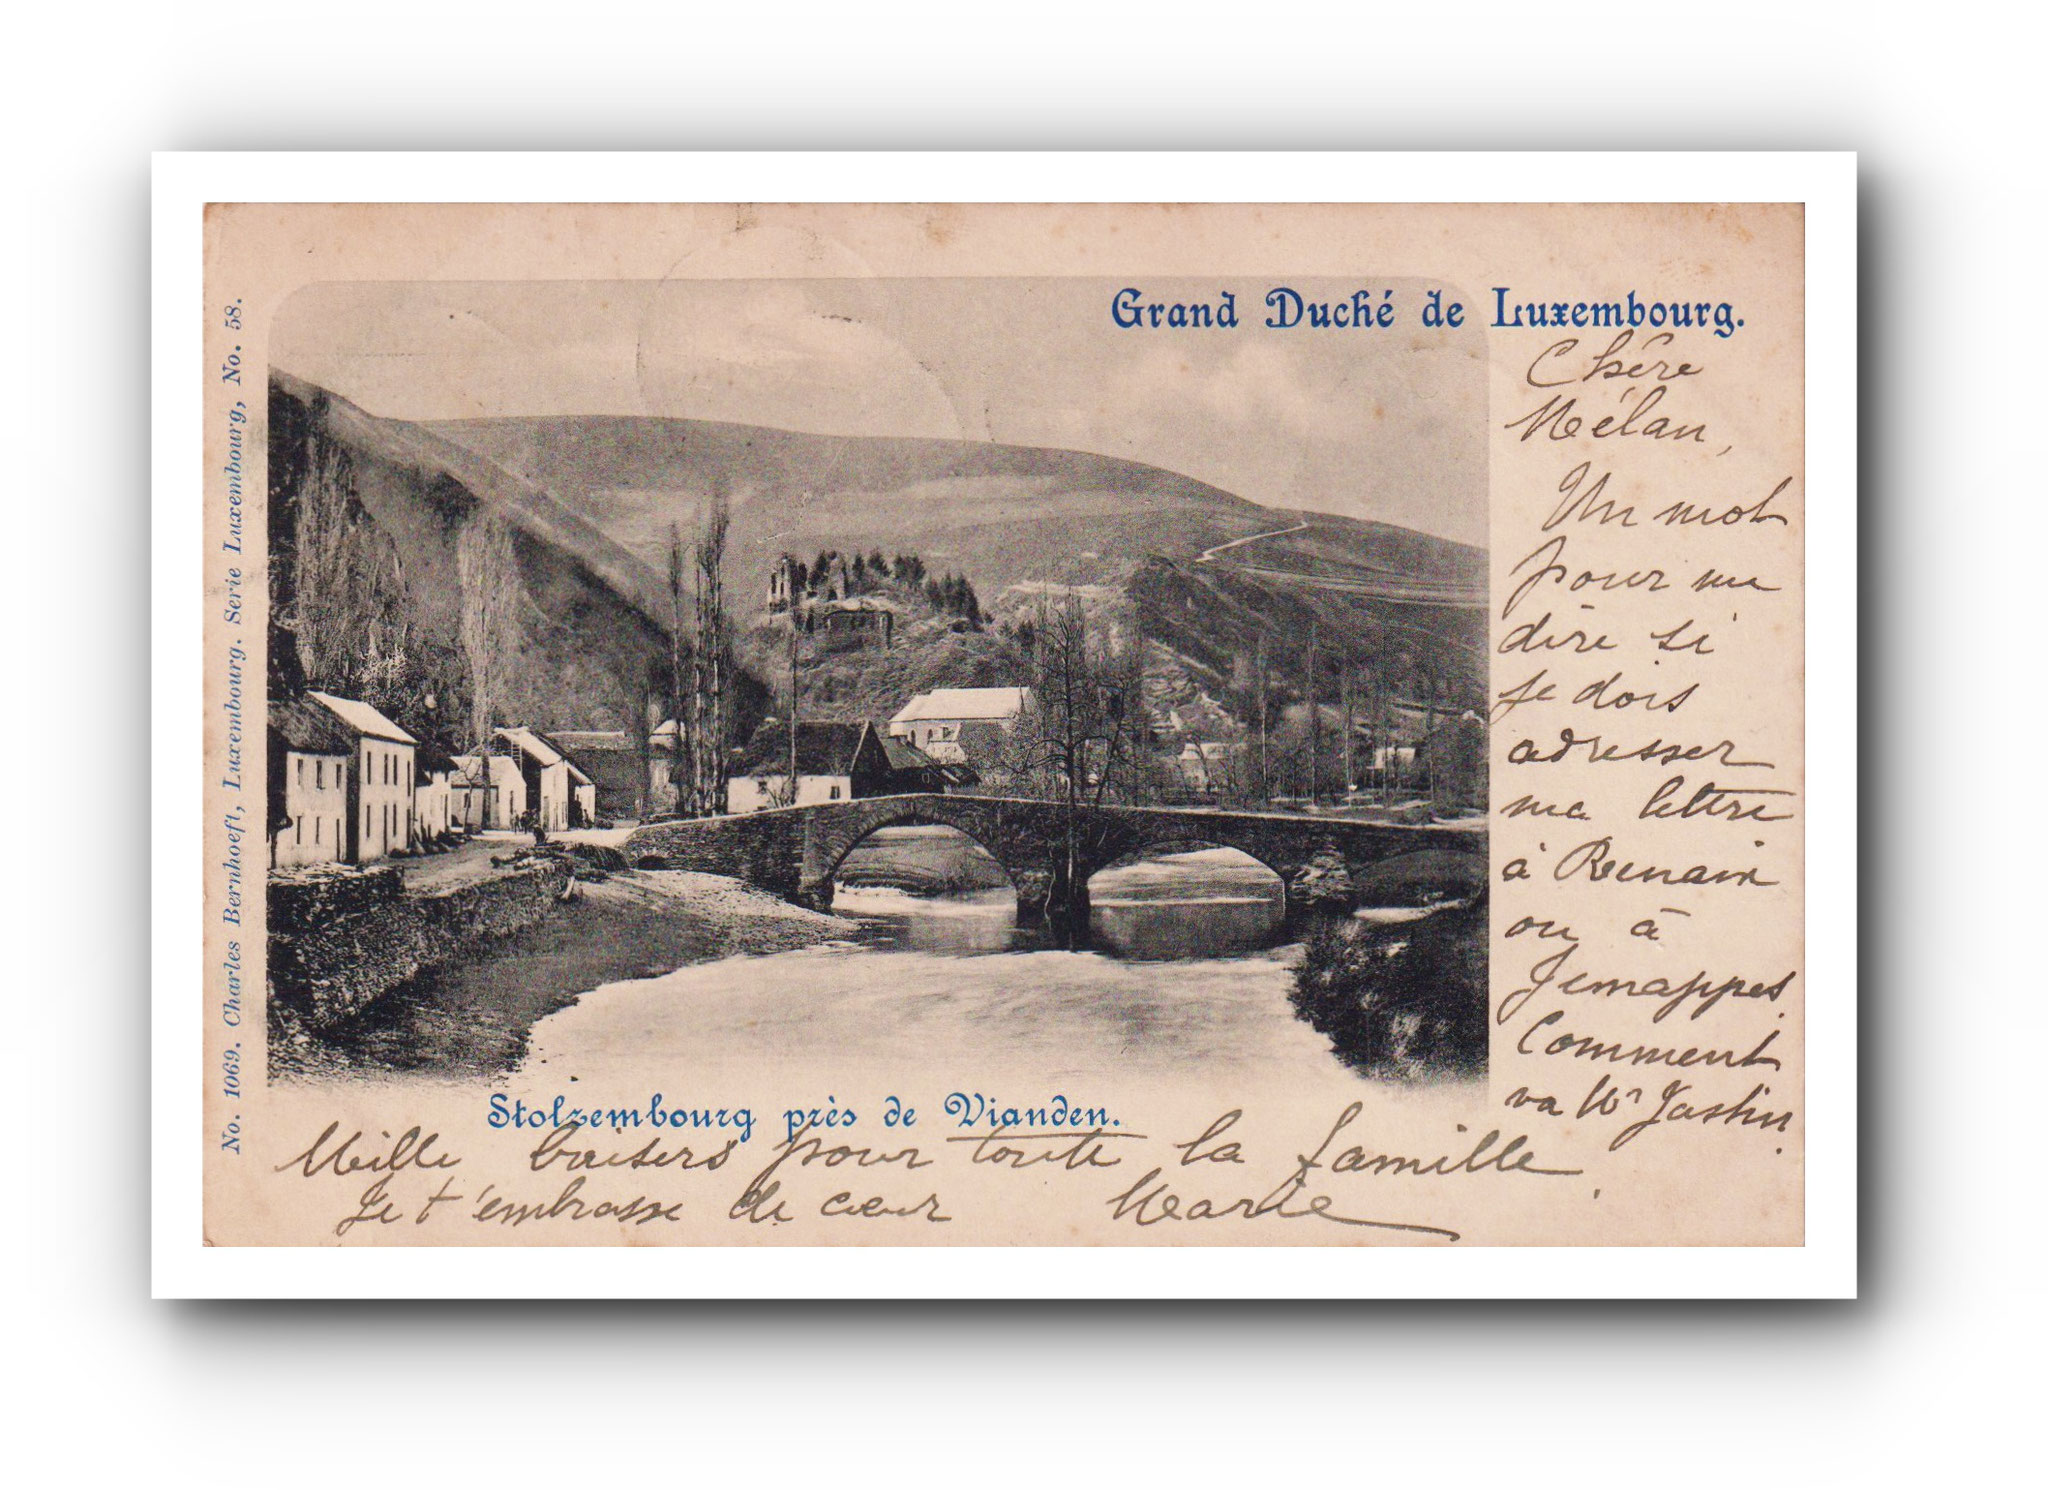 Grand Duché de Luxembourg.
Chère
Mélan,
Un mot
pour me
dire si
je dois
adresser
ma lettre
à Renaix
ou à
Jemappes.
Comment
va Mr Jastin.
Stolzembourg près de Vianden.
Mille baisers pour toute la famille.
Je t'embrasse de cœur Marie
No. 1069. Charles Bernhoeft, Luxembourg. Serie Luxembourg, No. 58.